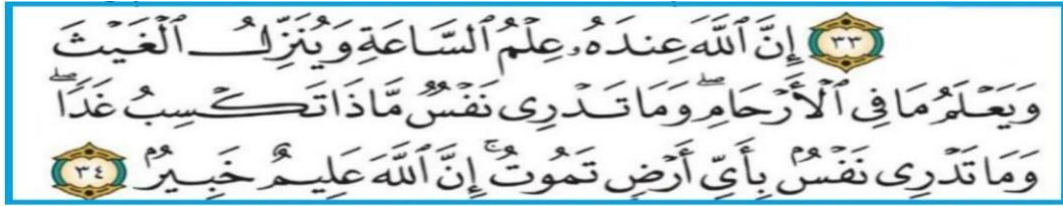 ٣٣ إِنَّ ٱللَّهَ عِندَهُۥ عِلۡمُ ٱلسَّاعَةِ وَيُنَزِّلُ ٱلۡغَيۡثَ
وَيَعۡلَمُ مَا فِي ٱلۡأَرۡحَامِۖ وَمَا تَدۡرِي نَفۡسٞ مَّاذَا تَكۡسِبُ غَدٗاۖ
وَمَا تَدۡرِي نَفۡسُۢ بِأَيِّ أَرۡضٖ تَمُوتُۚ إِنَّ ٱللَّهَ عَلِيمٌ خَبِيرُۢ ٣٤